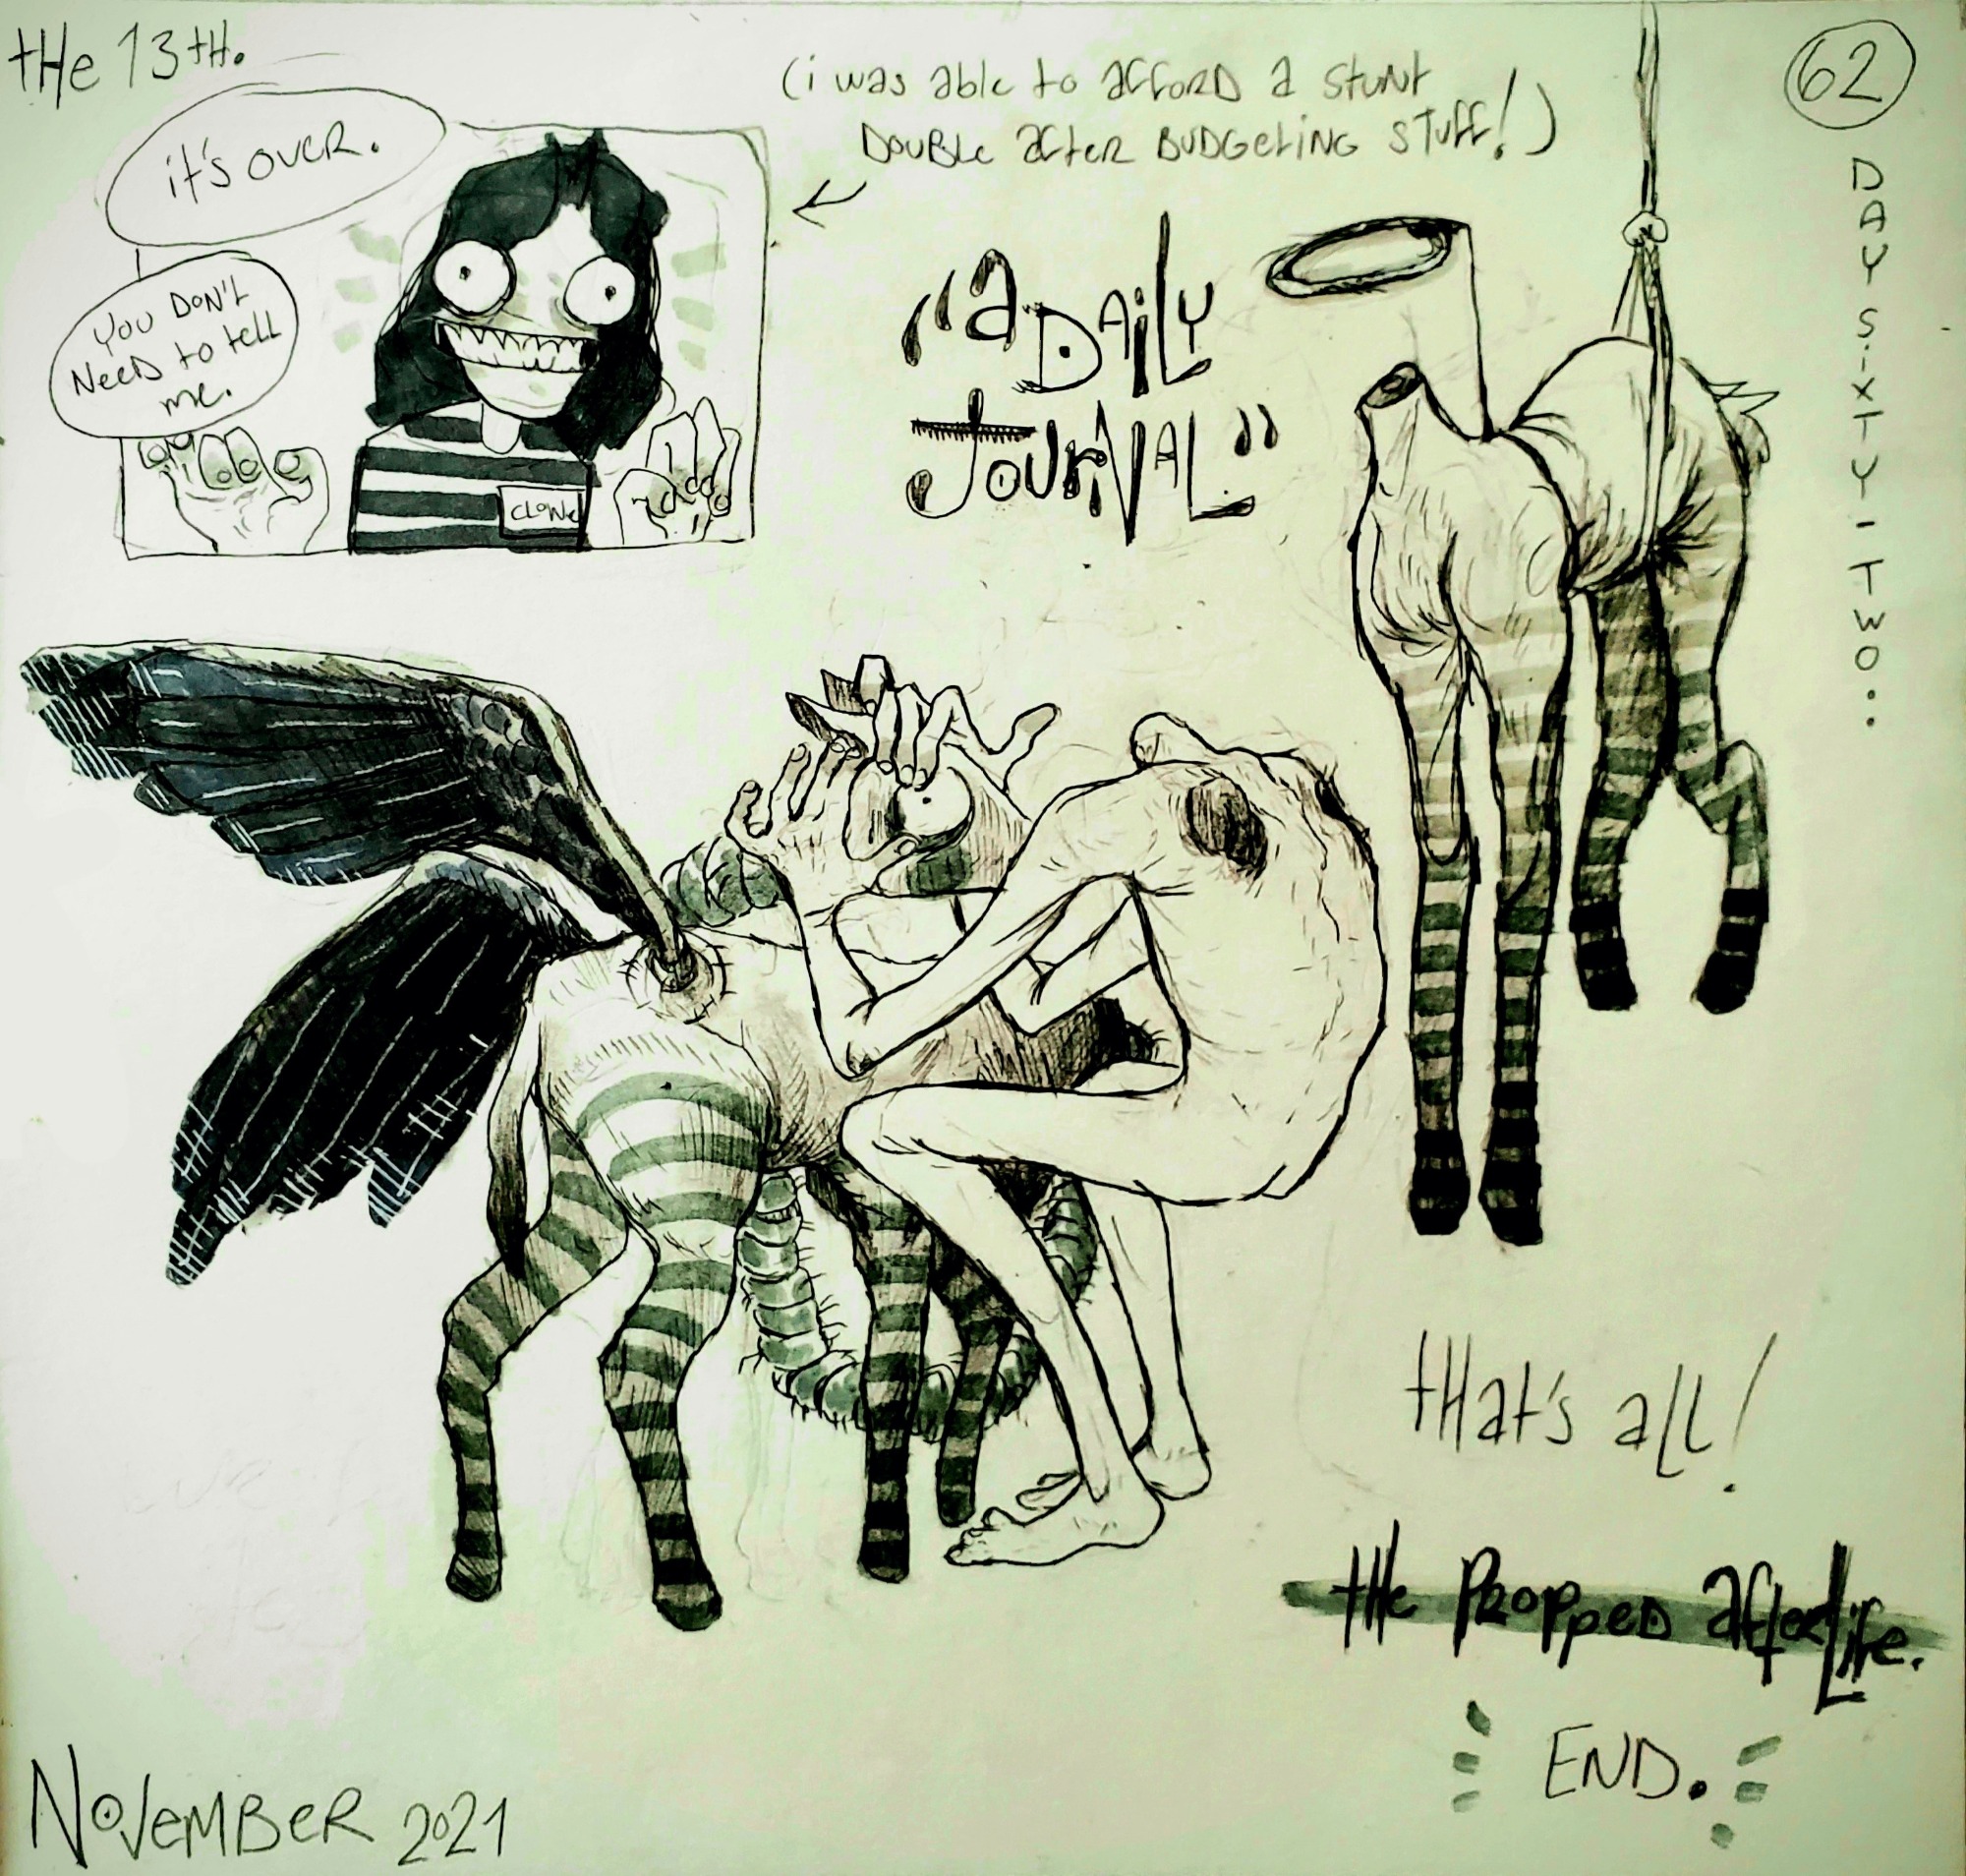 the 13th.
it's over.
You Don't
Need to tell
me.
CLONE
(i was able to afford a stunt
Double after BUDGETING stuff!)
"a DAiLy
JOURNAL"
62
DAY SiXTY-TWO..
that's all!
the Propped afterLife.
END.
NOVEMBER 2021